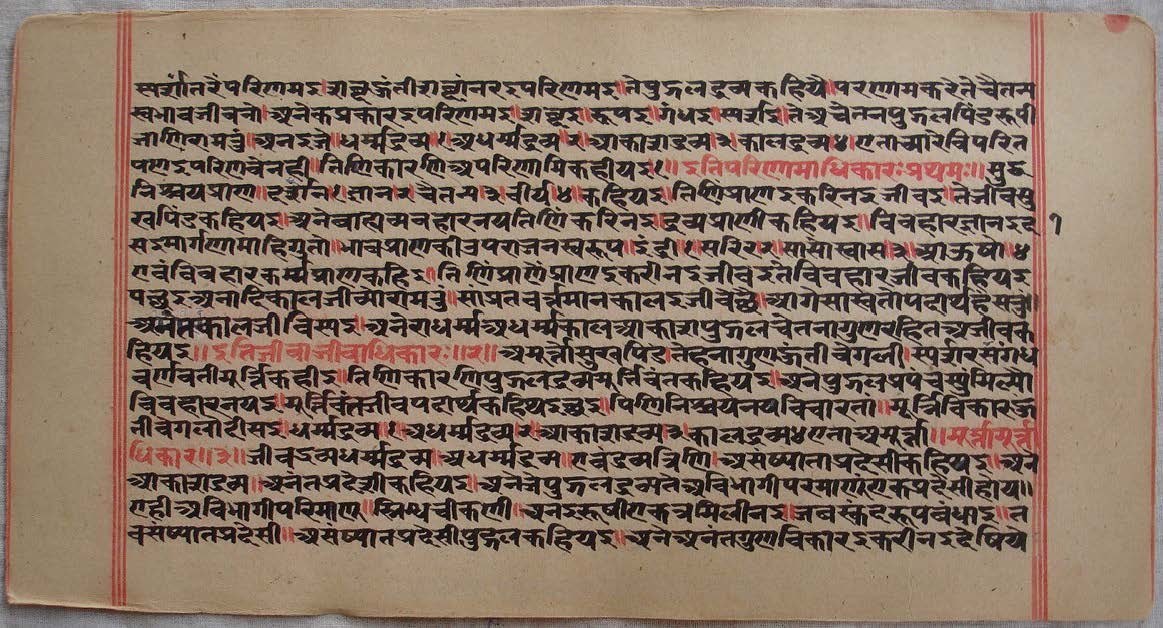 स्पर्शांतरें परिणमइ। शब्द हुंती शब्दांतरइ परिणमइ॥ ते पुद्गल द्रव्य कहियै॥ परणाम करे ते चैतन्य
स्वभाव जीवनो॥ अनेक प्रकारइ परिणमइ॥ शब्दइ॥ रूपइ॥ गंधइ॥ स्पर्शइ॥ ते अचेतन पुद्गलपिंडरूपी
जाणिरामत्तुं॥ अनइ जे॥ धर्म्मद्रव्य॥१ अधर्म्मद्रव्य॥२॥ आकाशद्रव्य॥३॥ कालद्रव्य॥४॥ एता च्यारे विपरित
पणइ परिणवे नही॥ तिणि कारणि अपरिणामि कहीयइ॥१॥ इति परिणामाधिकारः प्रथमः॥ सुद्ध
निश्चय प्राण॥ दर्शन॥१॥ ज्ञान॥२॥ चैतन्य॥३॥ वीर्य॥४॥ कहियइ॥ तिणि प्राणइ करिनइ जीवइ॥ ते जीव सु
खपिंड कहियइ॥ अने बाह्य व्यवहारनय तिणि करिनइ॥ द्रव्यप्राणी कहियइ॥ विवहार ज्ञानइ १
सइ मार्गणा माहि गुतो॥ भावप्राण की उपराजन स्वरूप॥ इंद्री॥१॥ सरिर॥२॥ सासोस्वास॥३॥ आऊषो॥४
एवं विवहार कर्म्मप्राण कहिइ॥ तिणिं प्राणें प्राणइ करीनइ जीवइ ते विवहार जीव कहियइ
अनादि काल जीव्या रामत्तुं॥ सांप्रत वर्त्तमान कालइ जीवे छै॥ आगे सास्वतो पदार्थ है सत्तु॥
अनंत काल जीविस्यइ॥ अने रा धर्म्म अधर्म्म काल आकाश पुद्गल चेतना गुण रहित अजीव क
हियइ॥ इति जीवाजीवाधिकारः॥२॥ अमूर्त्तो सुखपिंड॥ तेहना गुण हुंती वेगली। स्पर्श रस गंध
वर्णवती मूर्त्ति कहीइ॥ तिणि कारणि पुद्गलद्रव्य मूर्त्तिवंत कहियइ॥ अने पुद्गल प्रपंच स्युं मिल्यो
विवहारनयइ॥ मूर्त्तिवंत जीव पदार्थ कहियइ छइ॥ पिणि निश्चयनय विचारतां॥ मूर्त्ति विकार हुं
ती वेगलो दीसइ॥ धर्म्मद्रव्य॥१॥ अधर्म्मद्रव्य॥२॥ आकाशद्रव्य॥३॥ कालद्रव्य॥४ एता अमूर्त्तो॥ मूर्त्तामूर्त्ता
धिकार॥३॥ जीवद्रव्य धर्म्मद्रव्य॥ अधर्म्मद्रव्य॥ एवं द्रव्य त्रिणि॥ असंख्याता प्रदेसी कहियइ॥ अने
आकाशद्रव्य॥ अनंत प्रदेशी कहियइ॥ अने जे पुद्गल द्रव्य ते अविभागी परमाणु एक प्रदेसी होय॥
एही अविभागी परिमाणु॥ स्निग्ध चीकणी॥ अनइ रूषी एकत्र मिलीनइ॥ जब स्कंद रूप बंधाइ॥ त
व संख्यात प्रदेसी॥ असंख्यात प्रदेसी पुद्गल कहियइ॥ अने अनंतगुण विकारइ करीनइ देषिय